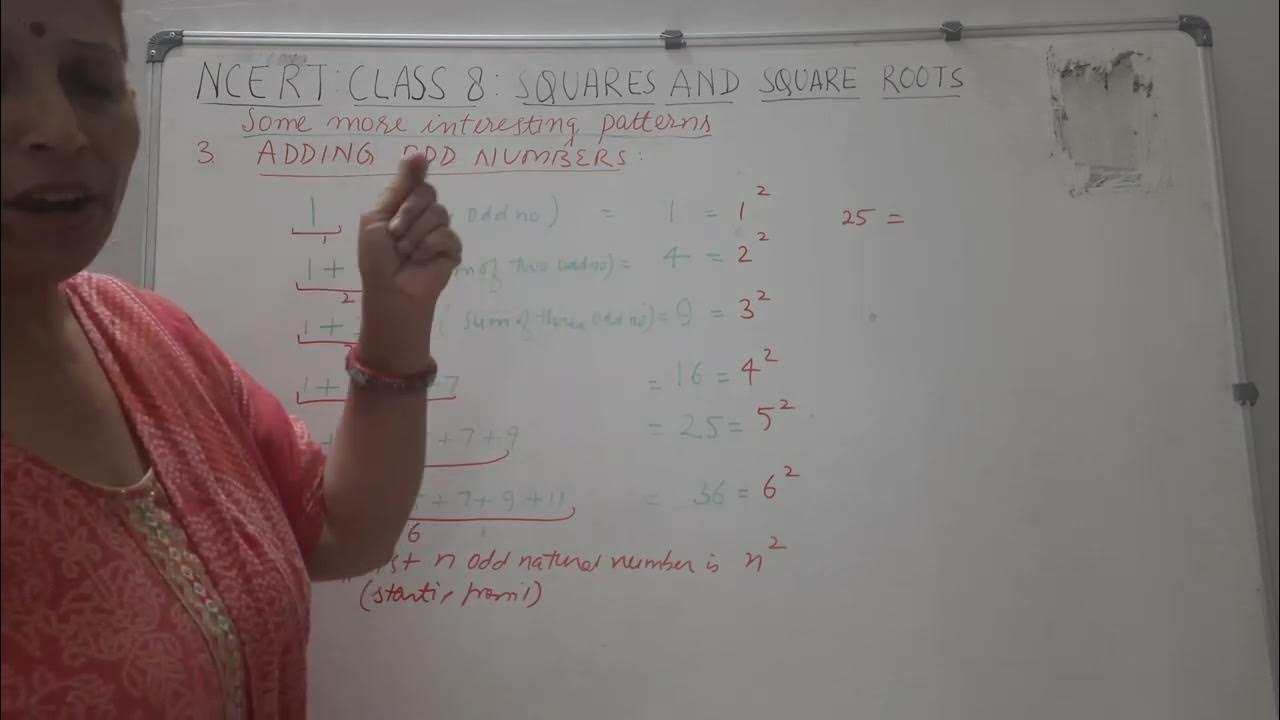 NCERT: CLASS 8: SQUARES AND SQUARE ROOTS
Some more interesting patterns
3. ADDING ODD NUMBERS:
1 odd no) = 1 = 1²
1
1+ of two odd no) = 4 = 2²
2
1+ (sum of three odd no) = 9 = 3²
1+ 7 = 16 = 4²
+7+9 = 25 = 5²
+7+9+11 = 36 = 6²
6
n odd natural number is n²
(from 1)
25 =